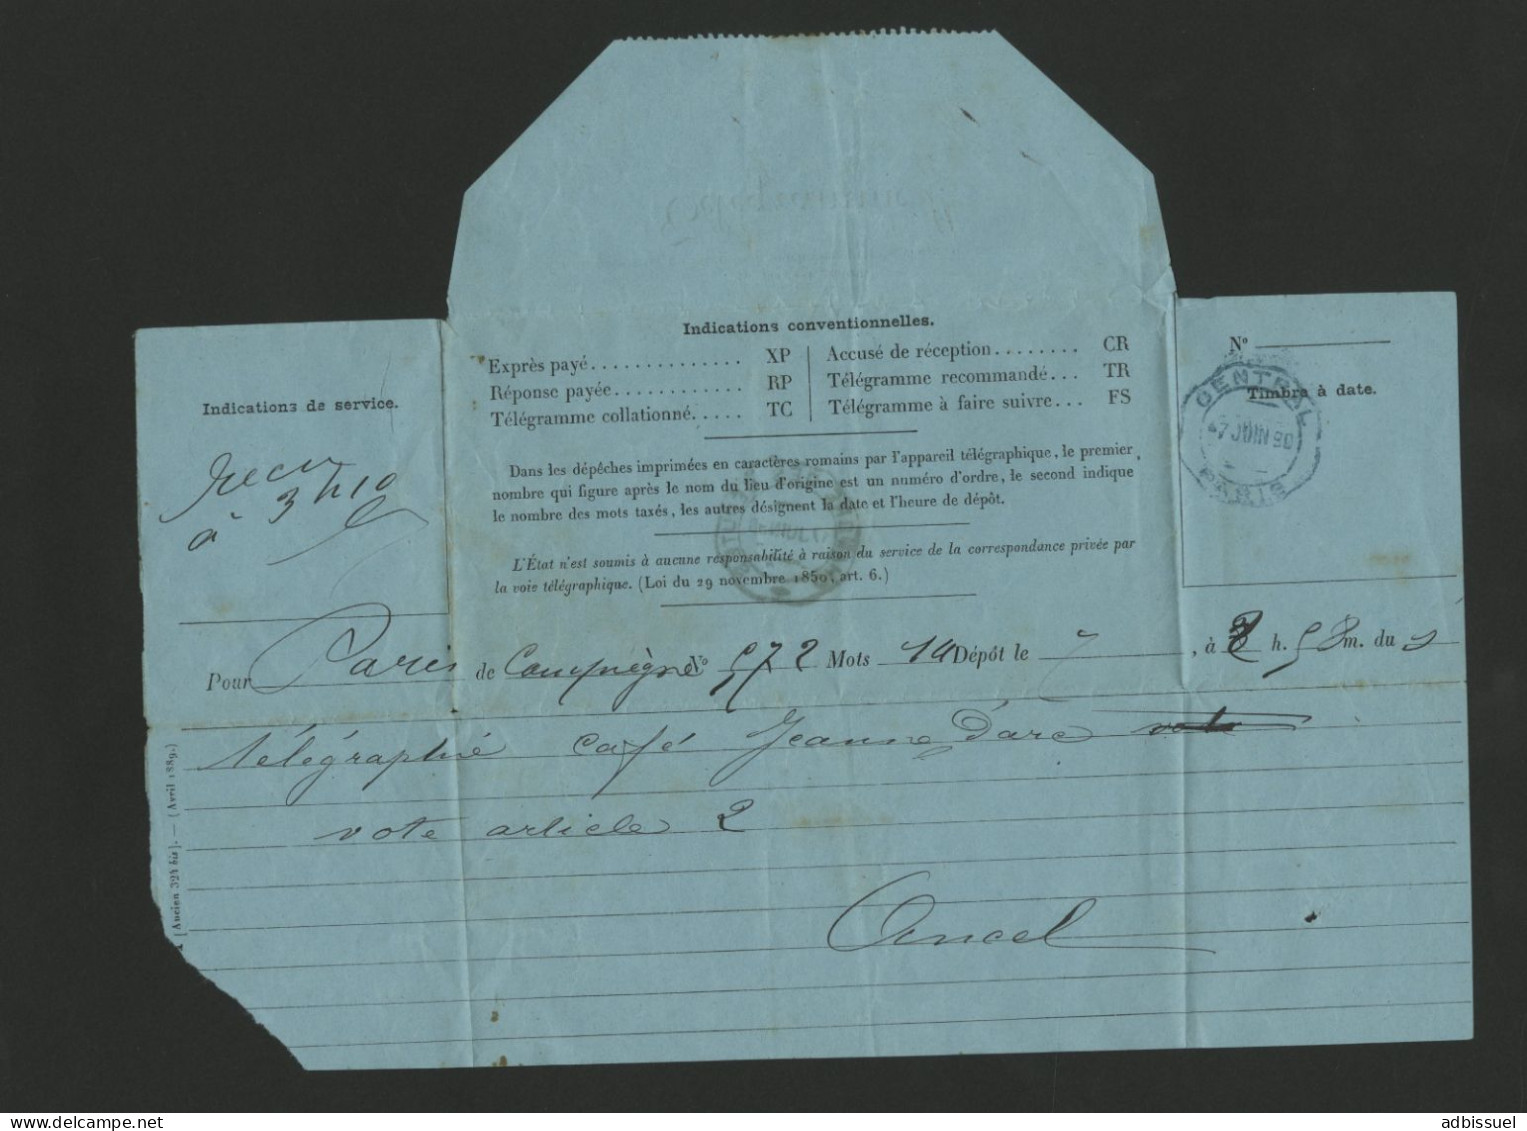 Indications conventionnelles.
Exprès payé . . . . . . . . . . . . . . XP
Réponse payée . . . . . . . . . . . . RP
Télégramme collationné. . . . . TC
Accusé de réception . . . . . . . . CR
Télégramme recommandé. . . TR
Télégramme à faire suivre. . . FS
Indications de service.
recu
à 3 h 10
Nº
Timbre à date.
CENTRAL
7 JUIN 90
PARIS
Dans les dépêches imprimées en caractères romains par l'appareil télégraphique, le premier
nombre qui figure après le nom du lieu d'origine est un numéro d'ordre, le second indique
le nombre des mots taxés, les autres désignent la date et l'heure de dépôt.
L'État n'est soumis à aucune responsabilité à raison du service de la correspondance privée par
la voie télégraphique. (Loi du 29 novembre 1850, art. 6.)
Pour Paris de Compiègne Nº 572 Mots 14 Dépôt le 7, à 2 h. 58 m. du s
télégraphie café Jeanne d'arc
vote article 2
Ancel
[Ancien 324 bis]. — (Avril 1889.)
adbissuel